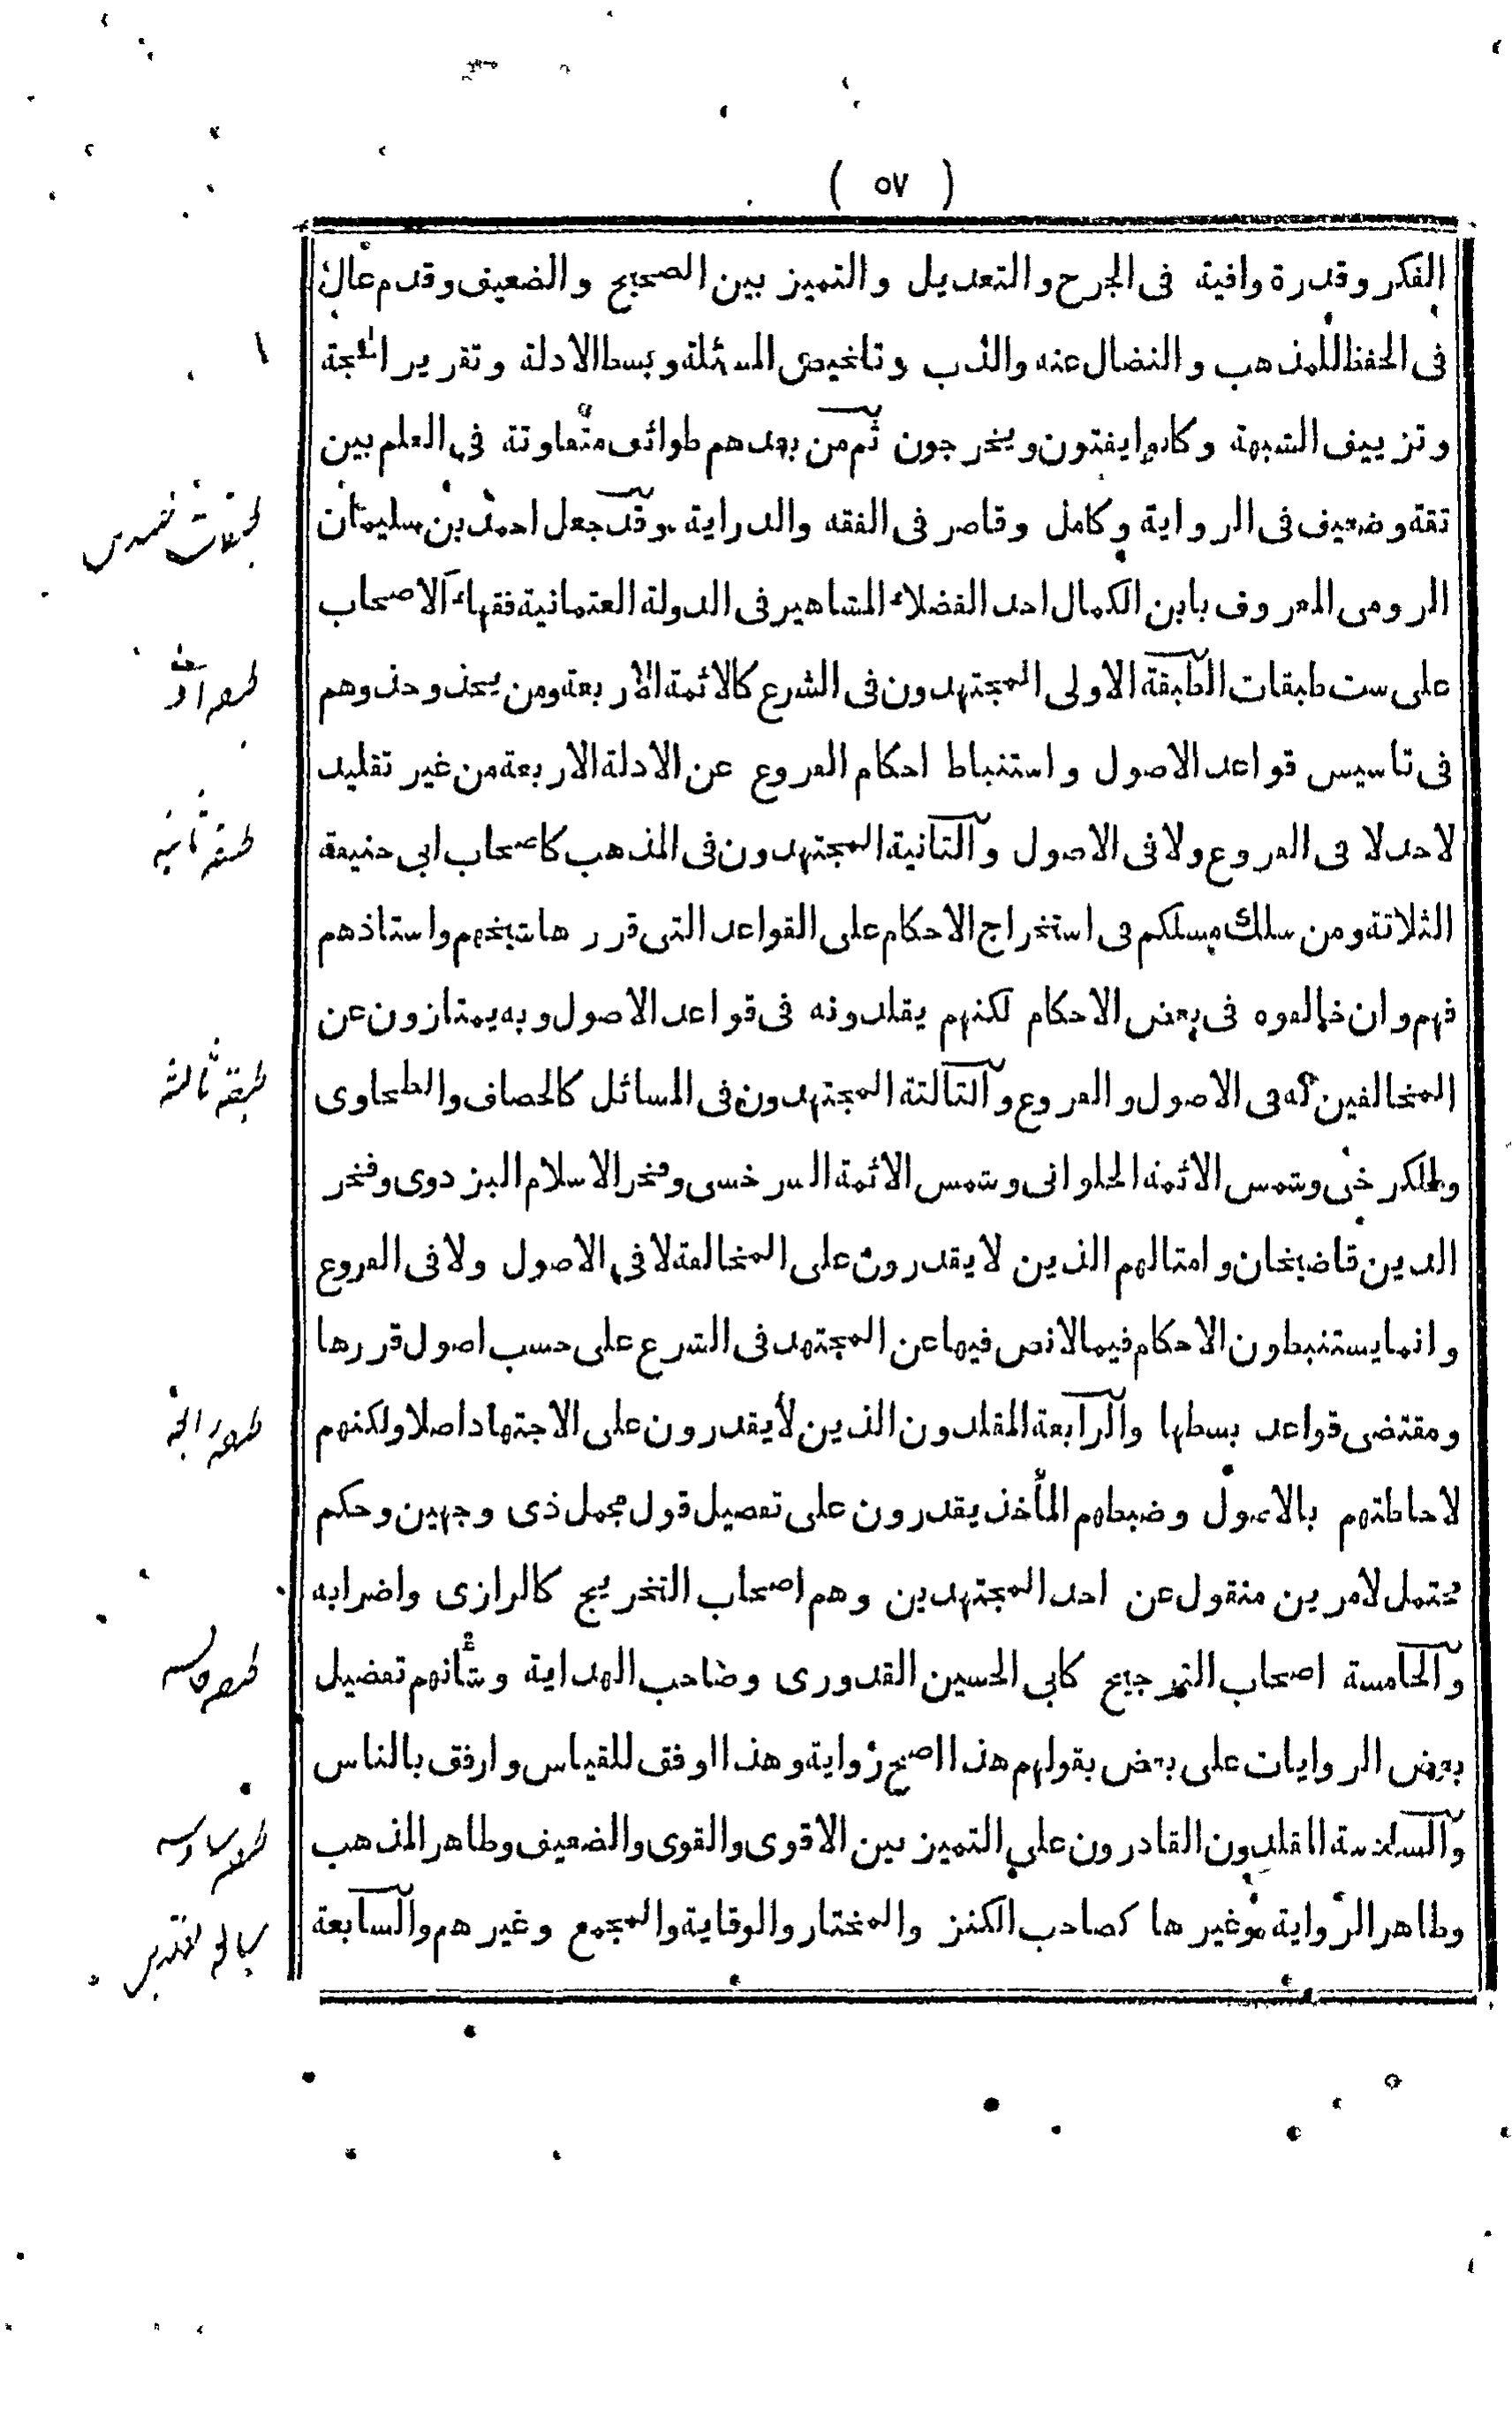 ( ٥٧ )
الفكر وقدرة وافية فى الجرح والتعديل والتميز بين الصحيح والضعيف وقدم عال
فى الحفظ للمذهب والنضال عنه والذب وتلخيص المسئلة وبسط الادلة وتقرير الحجة
وتزييف الشبهة وكانوا يفتون ويخرجون ثم من بعدهم طوائف متفاوتة فى العلم بين
ثقة وضعيف فى الرواية وكامل وقاصر فى الفقه والدراية وقد جعل احمد بن سليمان
الرومى المعروف بابن الكمال احد الفضلاء المشاهير فى الدولة العثمانية فقهاء الاصحاب
على ست طبقات الطبقة الاولى المجتهدون فى الشرع كالائمة الاربعة ومن يحذو حذوهم
فى تاسيس قواعد الاصول واستنباط احكام الفروع عن الادلة الاربعة من غير تقليد
لاحد لا فى الفروع ولا فى الاصول والثانية المجتهدون فى المذهب كاصحاب ابى حنيفة
الثلاثة ومن سلك مسلكهم فى استخراج الاحكام على القواعد التى قررها شيخهم واستاذهم
فهم وان خالفوه فى بعض الاحكام لكنهم يقلدونه فى قواعد الاصول وبه يمتازون عن
المخالفين له فى الاصول والفروع والثالثة المجتهدون فى المسائل كالخصاف والطحاوى
والكرخى وشمس الائمة الحلوانى وشمس الائمة السرخسى وفخر الاسلام البزدوى وفخر
الدين قاضيخان وامثالهم الذين لا يقدرون على المخالفة لا فى الاصول ولا فى الفروع
وانما يستنبطون الاحكام فيما لا نص فيها عن المجتهد فى الشرع على حسب اصول قررها
ومقتضى قواعد بسطها والرابعة المقلدون الذين لا يقدرون على الاجتهاد اصلا ولكنهم
لاحاطتهم بالاصول وضبطهم المأخذ يقدرون على تفصيل قول مجمل ذى وجهين وحكم
محتمل لامرين منقول عن احد المجتهدين وهم اصحاب التخريج كالرازى واضرابه
والخامسة اصحاب الترجيح كابى الحسين القدورى وصاحب الهداية وشأنهم تفضيل
بعض الروايات على بعض بقولهم هذا اصح رواية وهذا اوفق للقياس وارفق بالناس
والسادسة المقلدون القادرون على التميز بين الاقوى والقوى والضعيف وظاهر المذهب
وظاهر الرواية وغيرها كصاحب الكنز والمختار والوقاية والمجمع وغيرهم والسابعة
طبقه ثانيه
طبقه ثالثه
طبقه رابعه
طبقه خامسه
طبقه سادسه